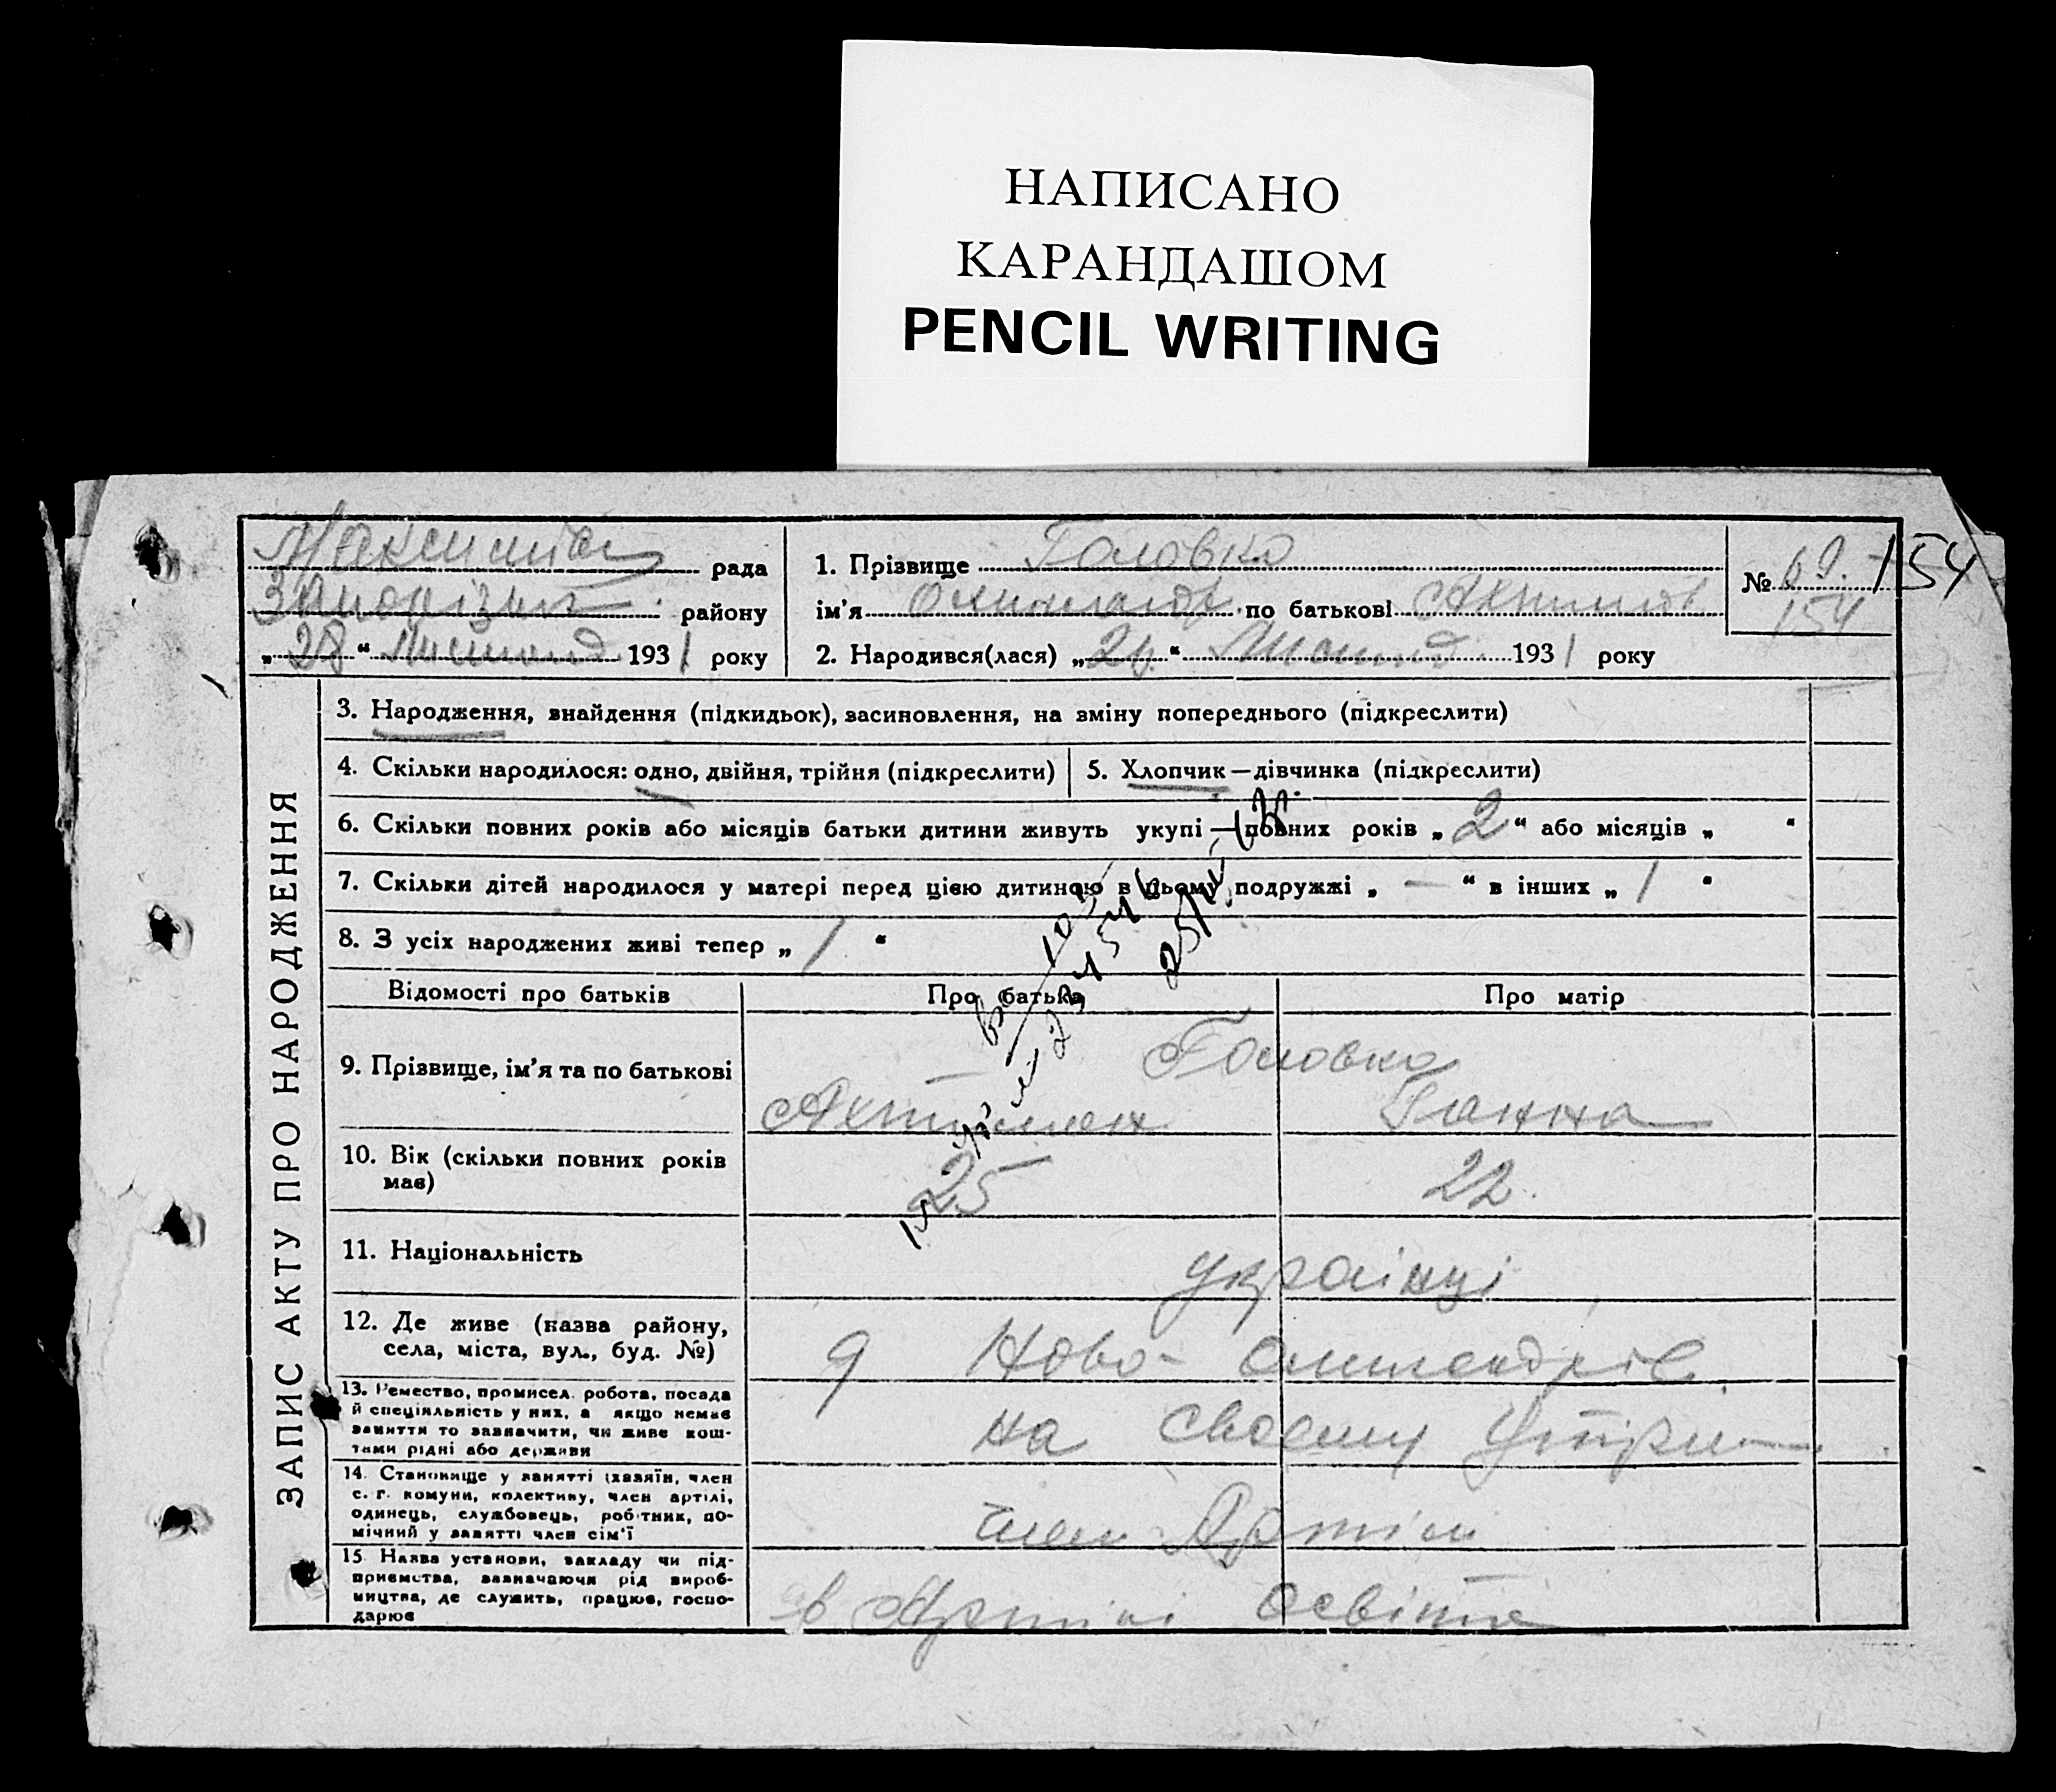 НАПИСАНО
КАРАНДАШОМ
PENCIL WRITING
рада
району
„28“ Листопад 1931 року
1. Прізвище Головко
ім’я по батькові
2. Народився(лася) „ “ 1931 року
№ 69. 154
154
ЗАПИС АКТУ ПРО НАРОДЖЕННЯ
3. Народження, внайдення (підкидьок), засиновлення, на зміну попереднього (підкреслити)
4. Скільки народилося: одно, двійня, трійня (підкреслити)
5. Хлопчик—дівчинка (підкреслити)
6. Скільки повних років або місяців батьки дитини живуть укупі — повних років „2“ або місяців „ “
7. Скільки дітей народилося у матері перед цією дитиною в цьому подружжі „—“ в інших „1“
8. З усіх народжених живі тепер „1“
Відомості про батьків
Про батька
Про матір
9. Прізвище, ім’я та по батькові
Головко
Ганна
10. Вік (скільки повних років має)
25
22.
11. Національність
українці
12. Де живе (назва району, села, міста, вул., буд. №)
Ново-
13. Ремество, промисел, робота, посада й спеціяльність у них, а якщо немає заняття то зазначити, чи живе коштами рідні або держави
на своєму
14. Становище у занятті (хазяїн, член с.-г. комуни, колективу, член артілі, одинець, службовець, робітник, помічний у занятті член сім’ї
член Артіли
15. Назва установи, закладу чи підприємства, зазначаючи рід виробництва, де служить, працює, господарює
в Артілі Освіта